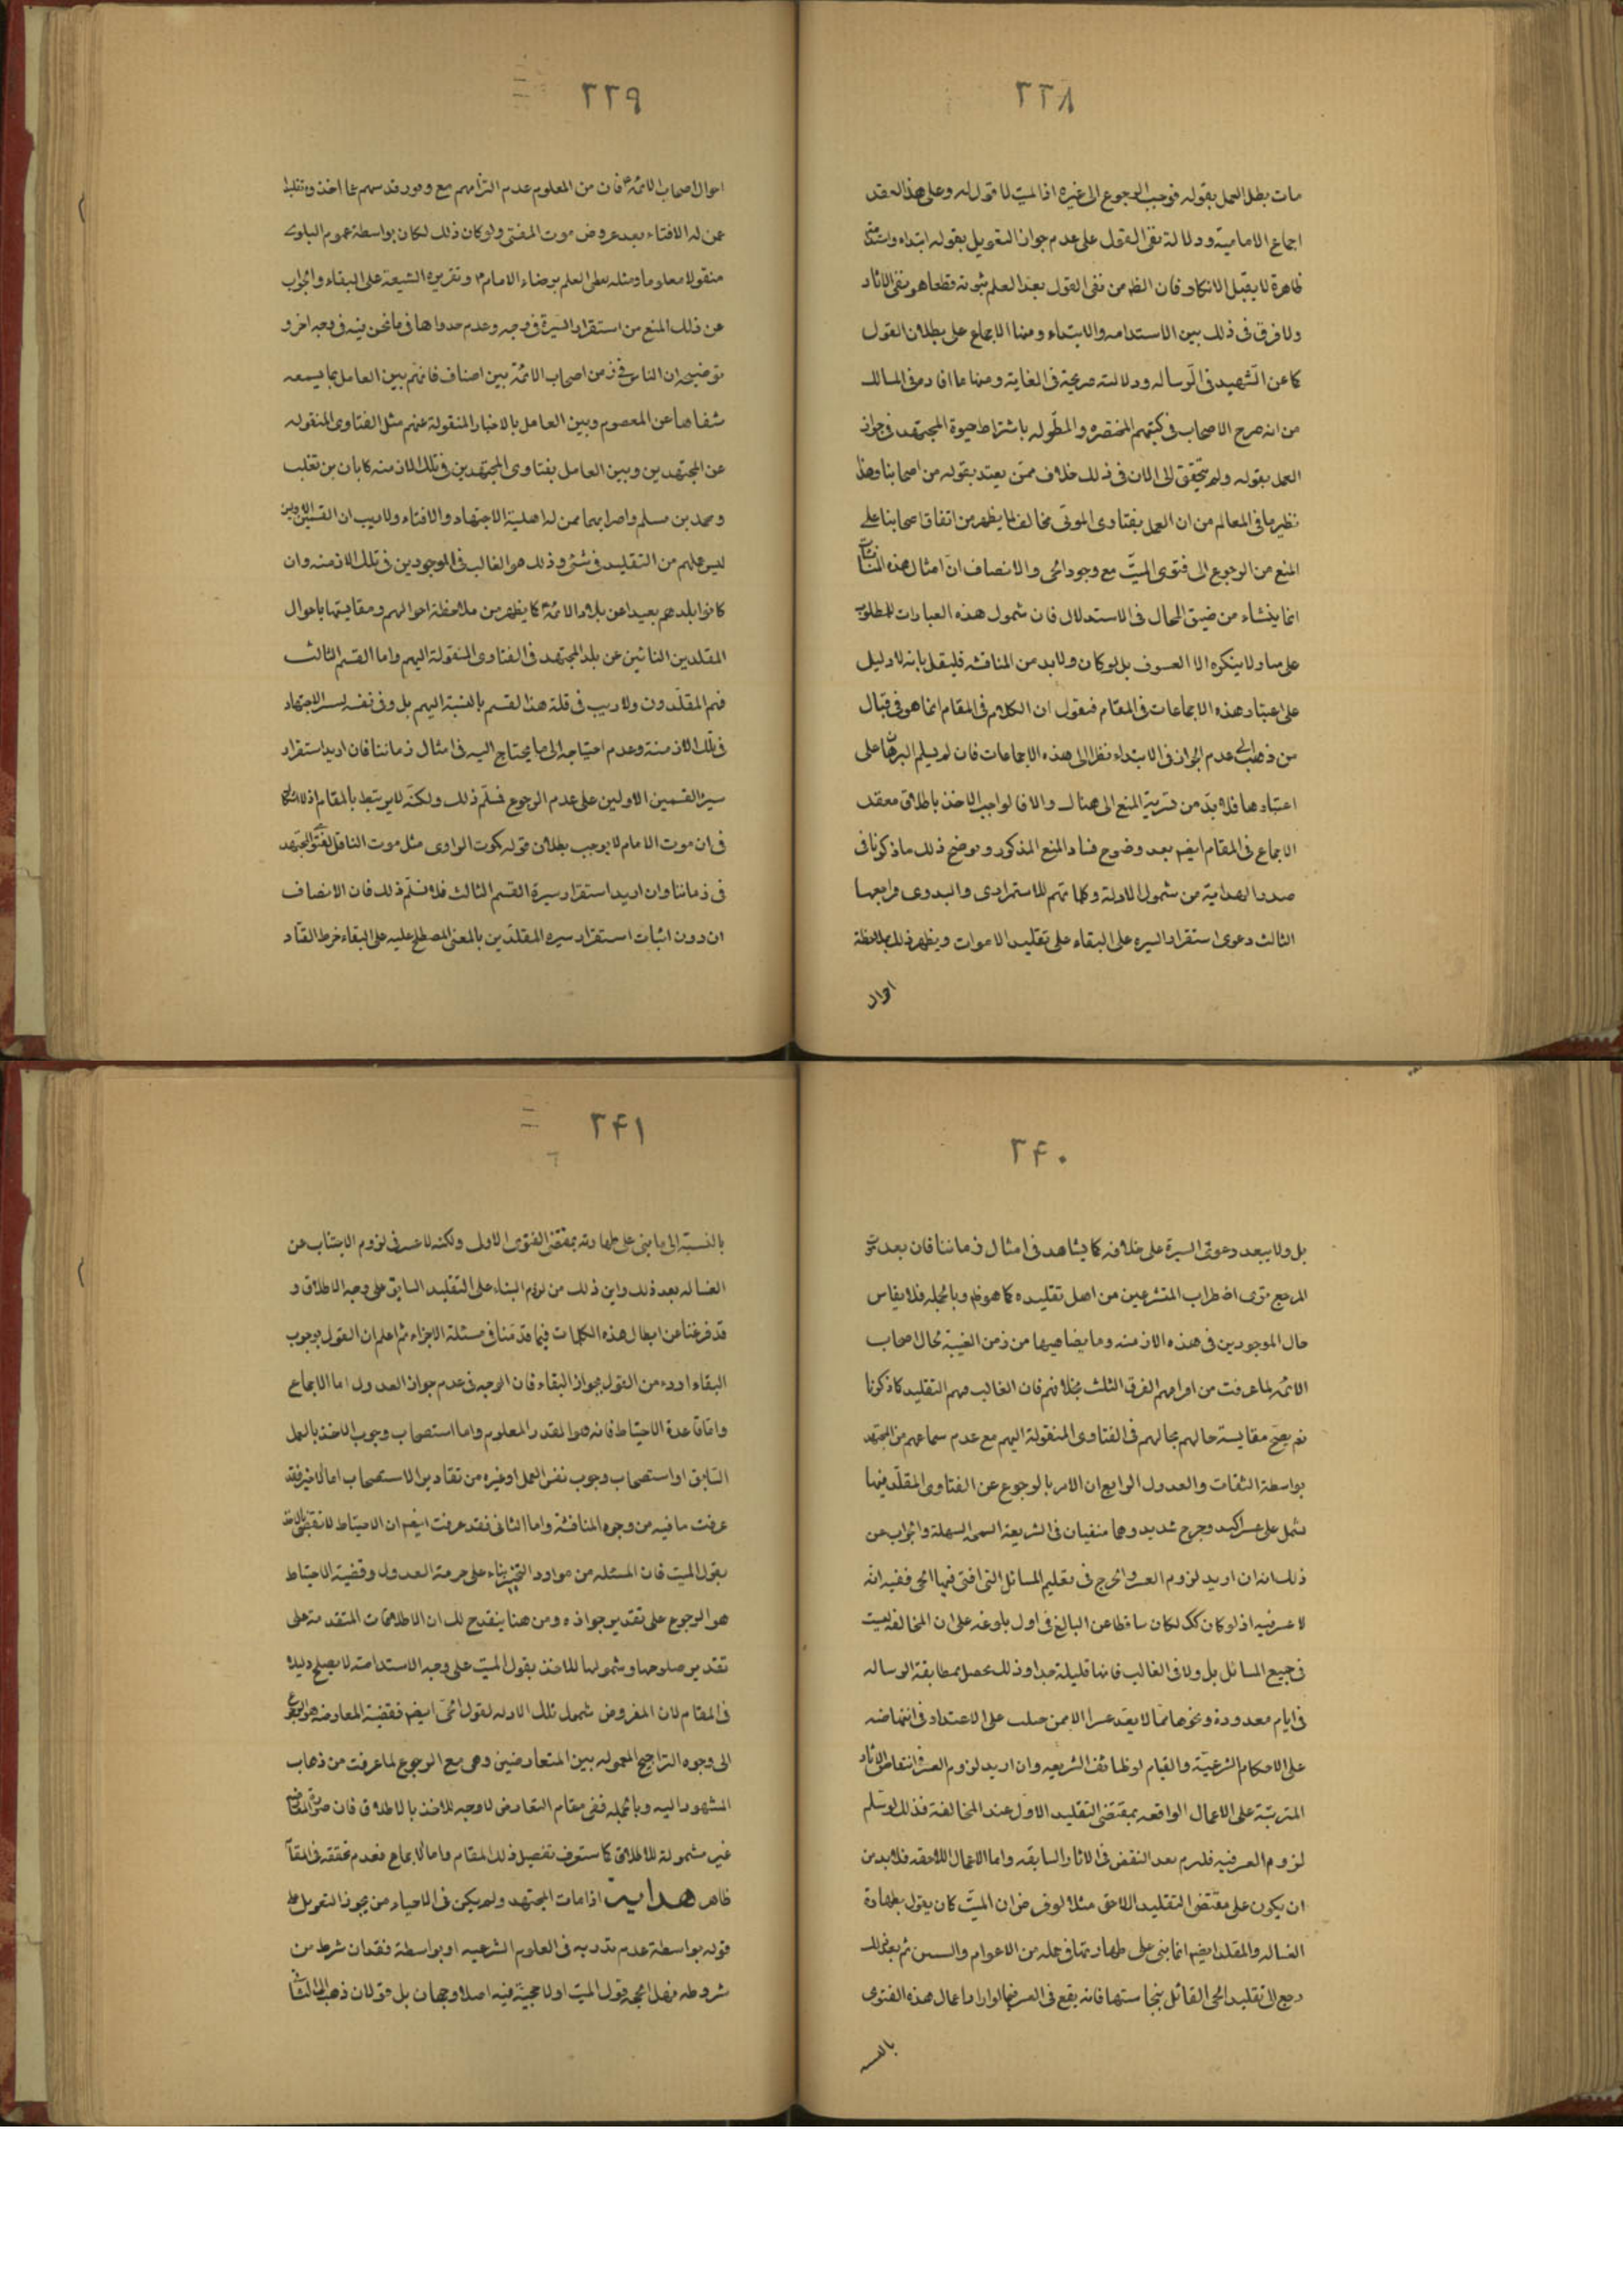 ٢٣٨
مات بطل العمل بقوله فوجب الرجوع الى غيره اذ الميت لا قول له وعلى هذا انعقد
اجماع الامامية ودلالة نفى القول على عدم جواز التعويل بقوله ابتداء واستدامة
ظاهرة لا يقبل الانكار فان الظ من نفى القول بعد العلم بثبوته قطعا هو نفى الاثار
ولا فرق فى ذلك بين الاستدامه والابتداء ومنها الاجماع على بطلان القول
كما عن الشهيد فى الرساله ودلالته صريحة فى الغاية ومنها ما افاده فى المسالك
من انه صرح الاصحاب فى كتبهم المختصره والمطوله باشتراط حيوة المجتهد فى جواز
العمل بقوله ولم يتحقق الى الان فى ذلك خلاف ممن يعتد بقوله من اصحابنا وهذا
نظير ما فى المعالم من ان العمل بفتاوى الموتى مخالف لما يظهر من اتفاق اصحابنا على
المنع من الرجوع الى فتوى الميت مع وجود الحى والانصاف ان امثال هذه المناقشات
انما ينشاء من ضيق المجال فى الاستدلال فان شمول هذه العبارات للمطلوب
على ما ولا ينكره الا العسوف بل لو كان ولابد من المناقشه فليقل بانه لا دليل
على اعتبار هذه الاجماعات فى المقام فنقول ان الكلام فى المقام انما هو فى قبال
من ذهب الى عدم الجواز فى الابتداء نظرا الى هذه الاجماعات فان لم يسلم البرهان على
اعتبارها فلا بد من تسرية المنع الى هناك والا فالواجب الاخذ باطلاق معقد
الاجماع فى المقام ايضم بعد وضوح فساد المنع المذكور ويوضح ذلك ما ذكرنا فى
صدر الهداية من شمول الادلة وكلماتهم للاستمرارى والبدوى فراجعها
الثالث دعوى استقرار السيره على البقاء على تقليد الاموات ويظهر ذلك بملاحظة
احوال
٢٣٩
احوال اصحاب الائمة فان من المعلوم عدم التزامهم مع وفور قدسهم عما اخذوه تقليدا
عمن له الافتاء بعد عروض موت المفتى ولو كان ذلك لكان بواسطة عموم البلوى
منقولا معلوما ومثله يعطى العلم برضاء الامام وتقريره الشيعة على البقاء والجواب
عن ذلك المنع من استقرار السيرة فى وجه وعدم جدواها فى ما نحن فيه فى وجه اخر و
توضيحه ان الناس فى زمن اصحاب الائمة بين اصناف فانهم بين العامل بما يسمعه
شفاها عن المعصوم وبين العامل بالاخبار المنقولة عنهم مثل الفتاوى المنقوله
عن المجتهدين وبين العامل بفتاوى المجتهدين فى تلك الازمنه كابان بن تغلب
ومحمد بن مسلم واضرابهما ممن له اهلية الاجتهاد والافتاء ولا ريب ان القسمين الاولين
ليس عملهم من التقليد فى شئ وذلك هو الغالب فى الموجودين فى تلك الازمنه وان
كانوا بلدهم بعيدا عن بلد الائمة كما يظهر من ملاحظة احوالهم ومقايستها باحوال
المقلدين النائين عن بلد المجتهد فى الفتاوى المنقولة اليهم واما القسم الثالث
فهم المقلدون ولا ريب فى قلة هذا القسم بالنسبة اليهم بل وفى نفسه ليسر الاجتهاد
فى تلك الازمنة وعدم احتياجه الى ما يحتاج اليه فى امثال زماننا فان اريد استقرار
سيرة القسمين الاولين على عدم الرجوع فسلم ذلك ولكنه لا يرتبط بالمقام اذ لا اشكال
فى ان موت الامام لا يوجب بطلان قوله كموت الراوى مثل موت الناقل لفتوى المجتهد
فى زماننا وان اريد استقرار سيرة القسم الثالث فلا نسلم ذلك فان الانصاف
ان دون اثبات استقرار سيره المقلدين بالمعنى المصطلح عليه على البقاء خرط القتاد
٢۴٠
بل ولا يبعد دعوى السيرة على خلافه كما يشاهد فى امثال زماننا فان بعد موت
المرجع ترى اضطراب المتشرعين من اصل تقليده كما هو ظ وبالجمله فلا يقاس
حال الموجودين فى هذه الازمنه وما يضاهيها من زمن الغيبة بحال اصحاب
الائمه لما عرفت من افراقهم الفرق الثلث بخلافهم فان الغالب فيهم التقليد كما ذكرنا
نعم يصح مقايسة حالهم بحالهم فى الفتاوى المنقولة اليهم مع عدم سماعهم من المجتهد
بواسطة الثقات والعدول الرابع ان الامر بالرجوع عن الفتاوى المقلد فيها
يشمل على عسر اكيد وحرج شديد وهما منفيان فى الشريعة السمحة السهلة والجواب عن
ذلك انه ان اريد لزوم العسر والحرج فى تعليم المسائل التى افتى فيها الحى ففيه انه
لا عسر فيه اذ لو كان كك لكان ساقطا عن البالغ فى اول بلوغه على ان المخالفة ليست
فى جميع المسائل بل ولا فى الغالب فانها قليلة جدا وذلك يحصل بمطابقة الرساله
فى ايام معدودة ونحوها مما لا يعد عسرا الا من جلب على الاعتداد فى انتهاضه
على الاحكام الشرعية والقيام لوظائف الشريعه وان اريد لزوم العسر فى انتقاض الاثار
المترتبة على الاعمال الواقعه بمقتضى التقليد الاول عند المخالفة فذلك لو سلم
لزوم العسر فيه فلم يرم بعد النقض فى الاثار السابقه واما الاعمال اللاحقه فلابد من
ان يكون على مقتضى التقليد اللاحق مثلا لو فرض ان الميت كان يقول بطهارة
الغساله والمقلد ايضم انما بنى على طهارتها فى جمله من الاعوام والسنين ثم بعد ذلك
رجع الى تقليد الحى القائل بنجاستها فانه يقع فى العسر فيما لو اراد اعمال هذه الفتوى
بالنسبه
٢۴١
بالنسبة الى ما بنى على طهارته بمقتضى الفتوى الاول ولكنه لا عسر فى لزوم الاجتناب عن
الغساله بعد ذلك واين ذلك من لزوم البناء على التقليد السابق على وجه الاطلاق و
قد فرغنا عن ابطال هذه الكلمات فيما قدمنا فى مسئلة الاجزاء ثم اعلم ان القول بوجوب
البقاء اردء من القول بجواز البقاء فان الوجه فى عدم جواز العدول اما الاجماع
واما قاعدة الاحتياط فانه هو القدر المعلوم واما استصحاب وجوب الاخذ بالعمل
السابق او استصحاب وجوب نفس العمل او غيره من تقادير الاستصحاب اما الاخير فقد
عرفت ما فيه من وجوه المناقشة واما الثانى فقد عرفت ايضم ان الاحتياط لا تقتضى بالاخذ
بقول الميت فان المسئله من موارد التخيير بناء على حرمة العدول وقضية الاحتياط
هو الرجوع على تقدير جوازه ومن هنا ينقدح لك ان الاطلاقات المتقدمة على
تقدير صلوحها وشمولها للاخذ بقول الميت على وجه الاستدامة لا يصلح دليلا
فى المقام لان المفروض شمول تلك الادله لقول الحى ايضم فقضية المعارضة هو الرجوع
الى وجوه التراجيح المعموله بين المتعارضين وهى مع الرجوع لما عرفت من ذهاب
المشهور اليه وبالجمله ففى مقام التعارض لا وجه للاخذ بالاطلاق فان صورة التعارض
غير مشمولة للاطلاق كما ستعرف تفصيل ذلك المقام واما الاجماع فعدم تحققه فى المقام
ظاهر هداية اذا مات المجتهد ولم يكن فى الاحياء من يجوز التعويل على
قوله بواسطة عدم تدربه فى العلوم الشرعيه او بواسطة فقدان شرط من
شروطه فهل الحجه قول الميت او لا حجية فيه اصلا وجهان بل قولان ذهب الى الثانى